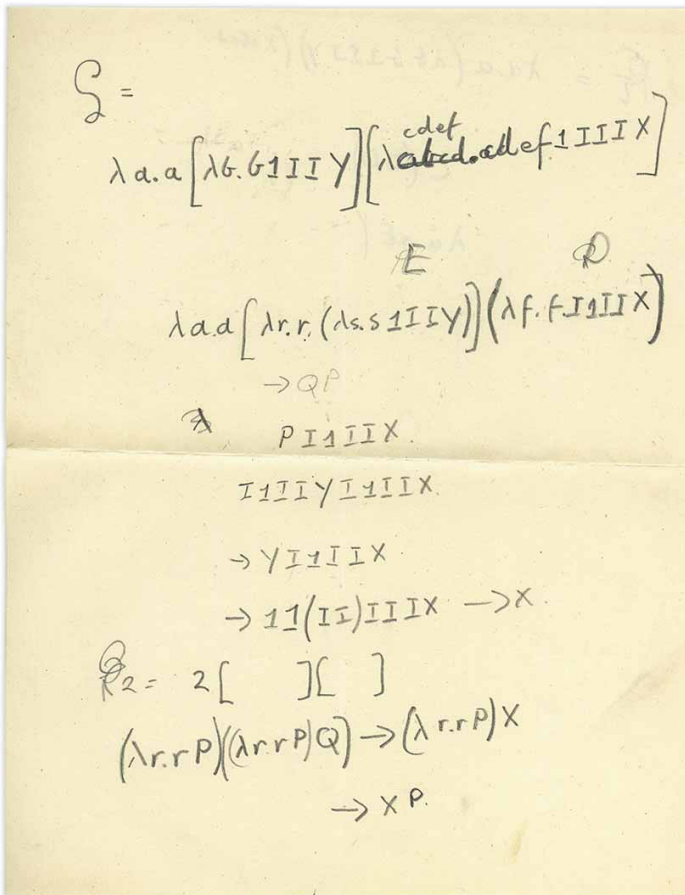 ζ =
cdef
λ a.a [λb.b1IIY][λ ef1IIIX]
E D
λa.a[λr.r.(λs.s1IIY)](λf.f.I1IIX)
→ QP
PI1IIX.
I1IIYI1IIX.
→ YI1IIX
→ 11(II)IIIX → X.
2 = 2 [ ] [ ]
(λr.rP)((λr.rP)Q) → (λr.rP)X
→ XP.